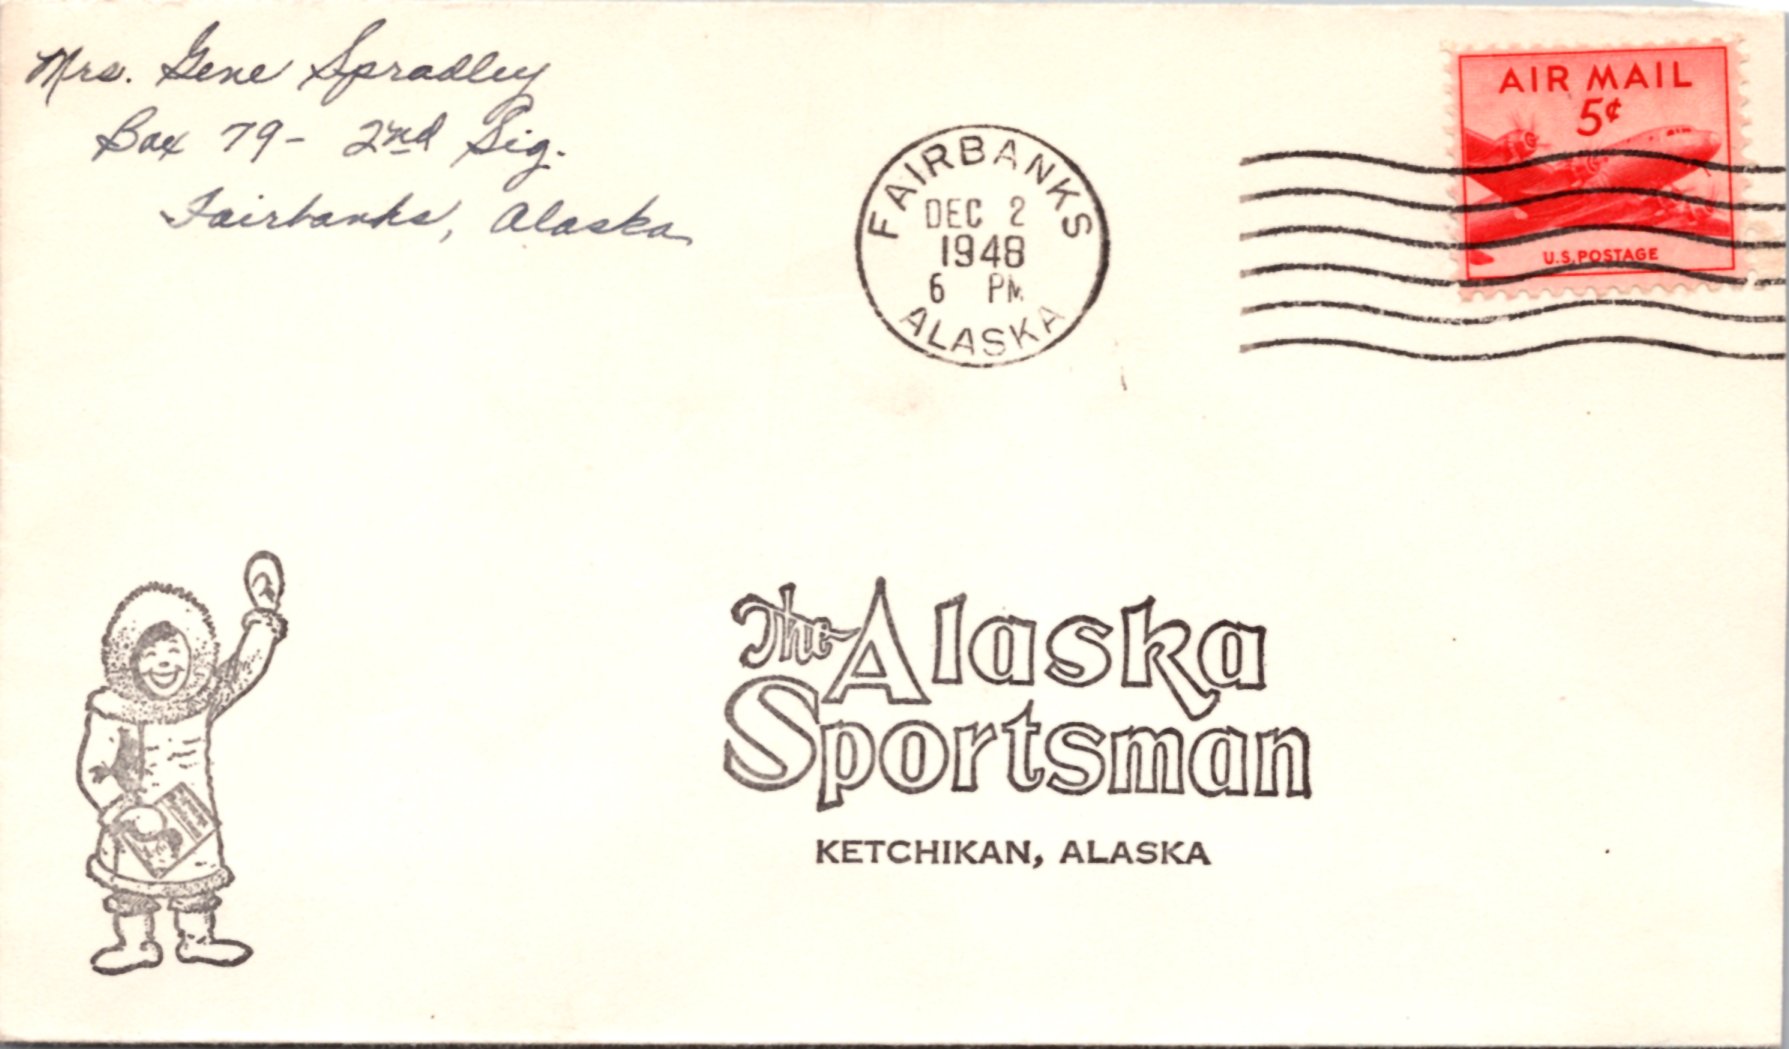 Mrs. Gene Spradley
Box 79- 2nd Sig.
Fairbanks, Alaska
FAIRBANKS
DEC 2
1948
6 PM
ALASKA
AIR MAIL
5¢
U.S. POSTAGE
The Alaska
Sportsman
KETCHIKAN, ALASKA